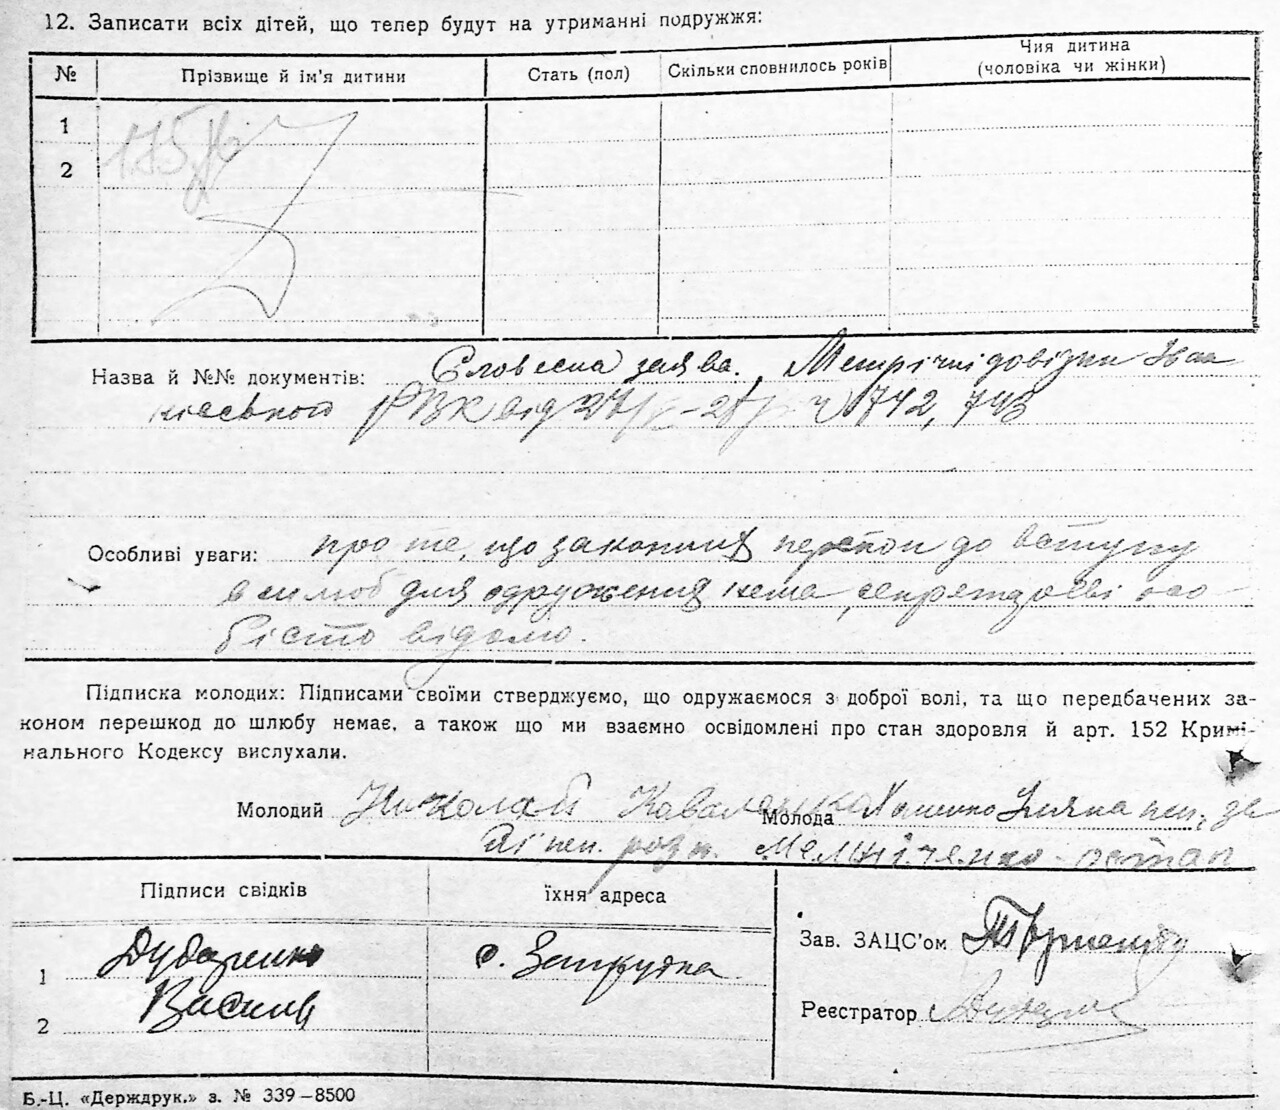 12. Записати всіх дітей, що тепер будут на утриманні подружжя:
№ Прізвище й ім'я дитини Стать (пол) Скільки сповнилось років Чия дитина (чоловіка чи жінки)
1
2
Назва й №№ документів: Словесна заява. Метричні довізки Іван
ківського РВК від 742, 743
Особливі уваги: про те, що законних перепон до вступу
для одруження нема, секретареві осо
бісто відомо.
Підписка молодих: Підписами своїми стверджуємо, що одружаємося з доброї волі, та що передбачених за-
коном перешкод до шлюбу немає, а також що ми взаємно освідомлені про стан здоровля й арт. 152 Кримі-
нального Кодексу вислухали.
Молодий Николай Коваленко Молода Уляна неп. за
неї неп. розп. Мельніченко Остап
Підписи свідків їхня адреса
Зав. ЗАЦС'ом
1 Дубаренко с. Запрудка
Василь
2
Реєстратор
Б.-Ц. «Держдрук.» з. № 339–8500